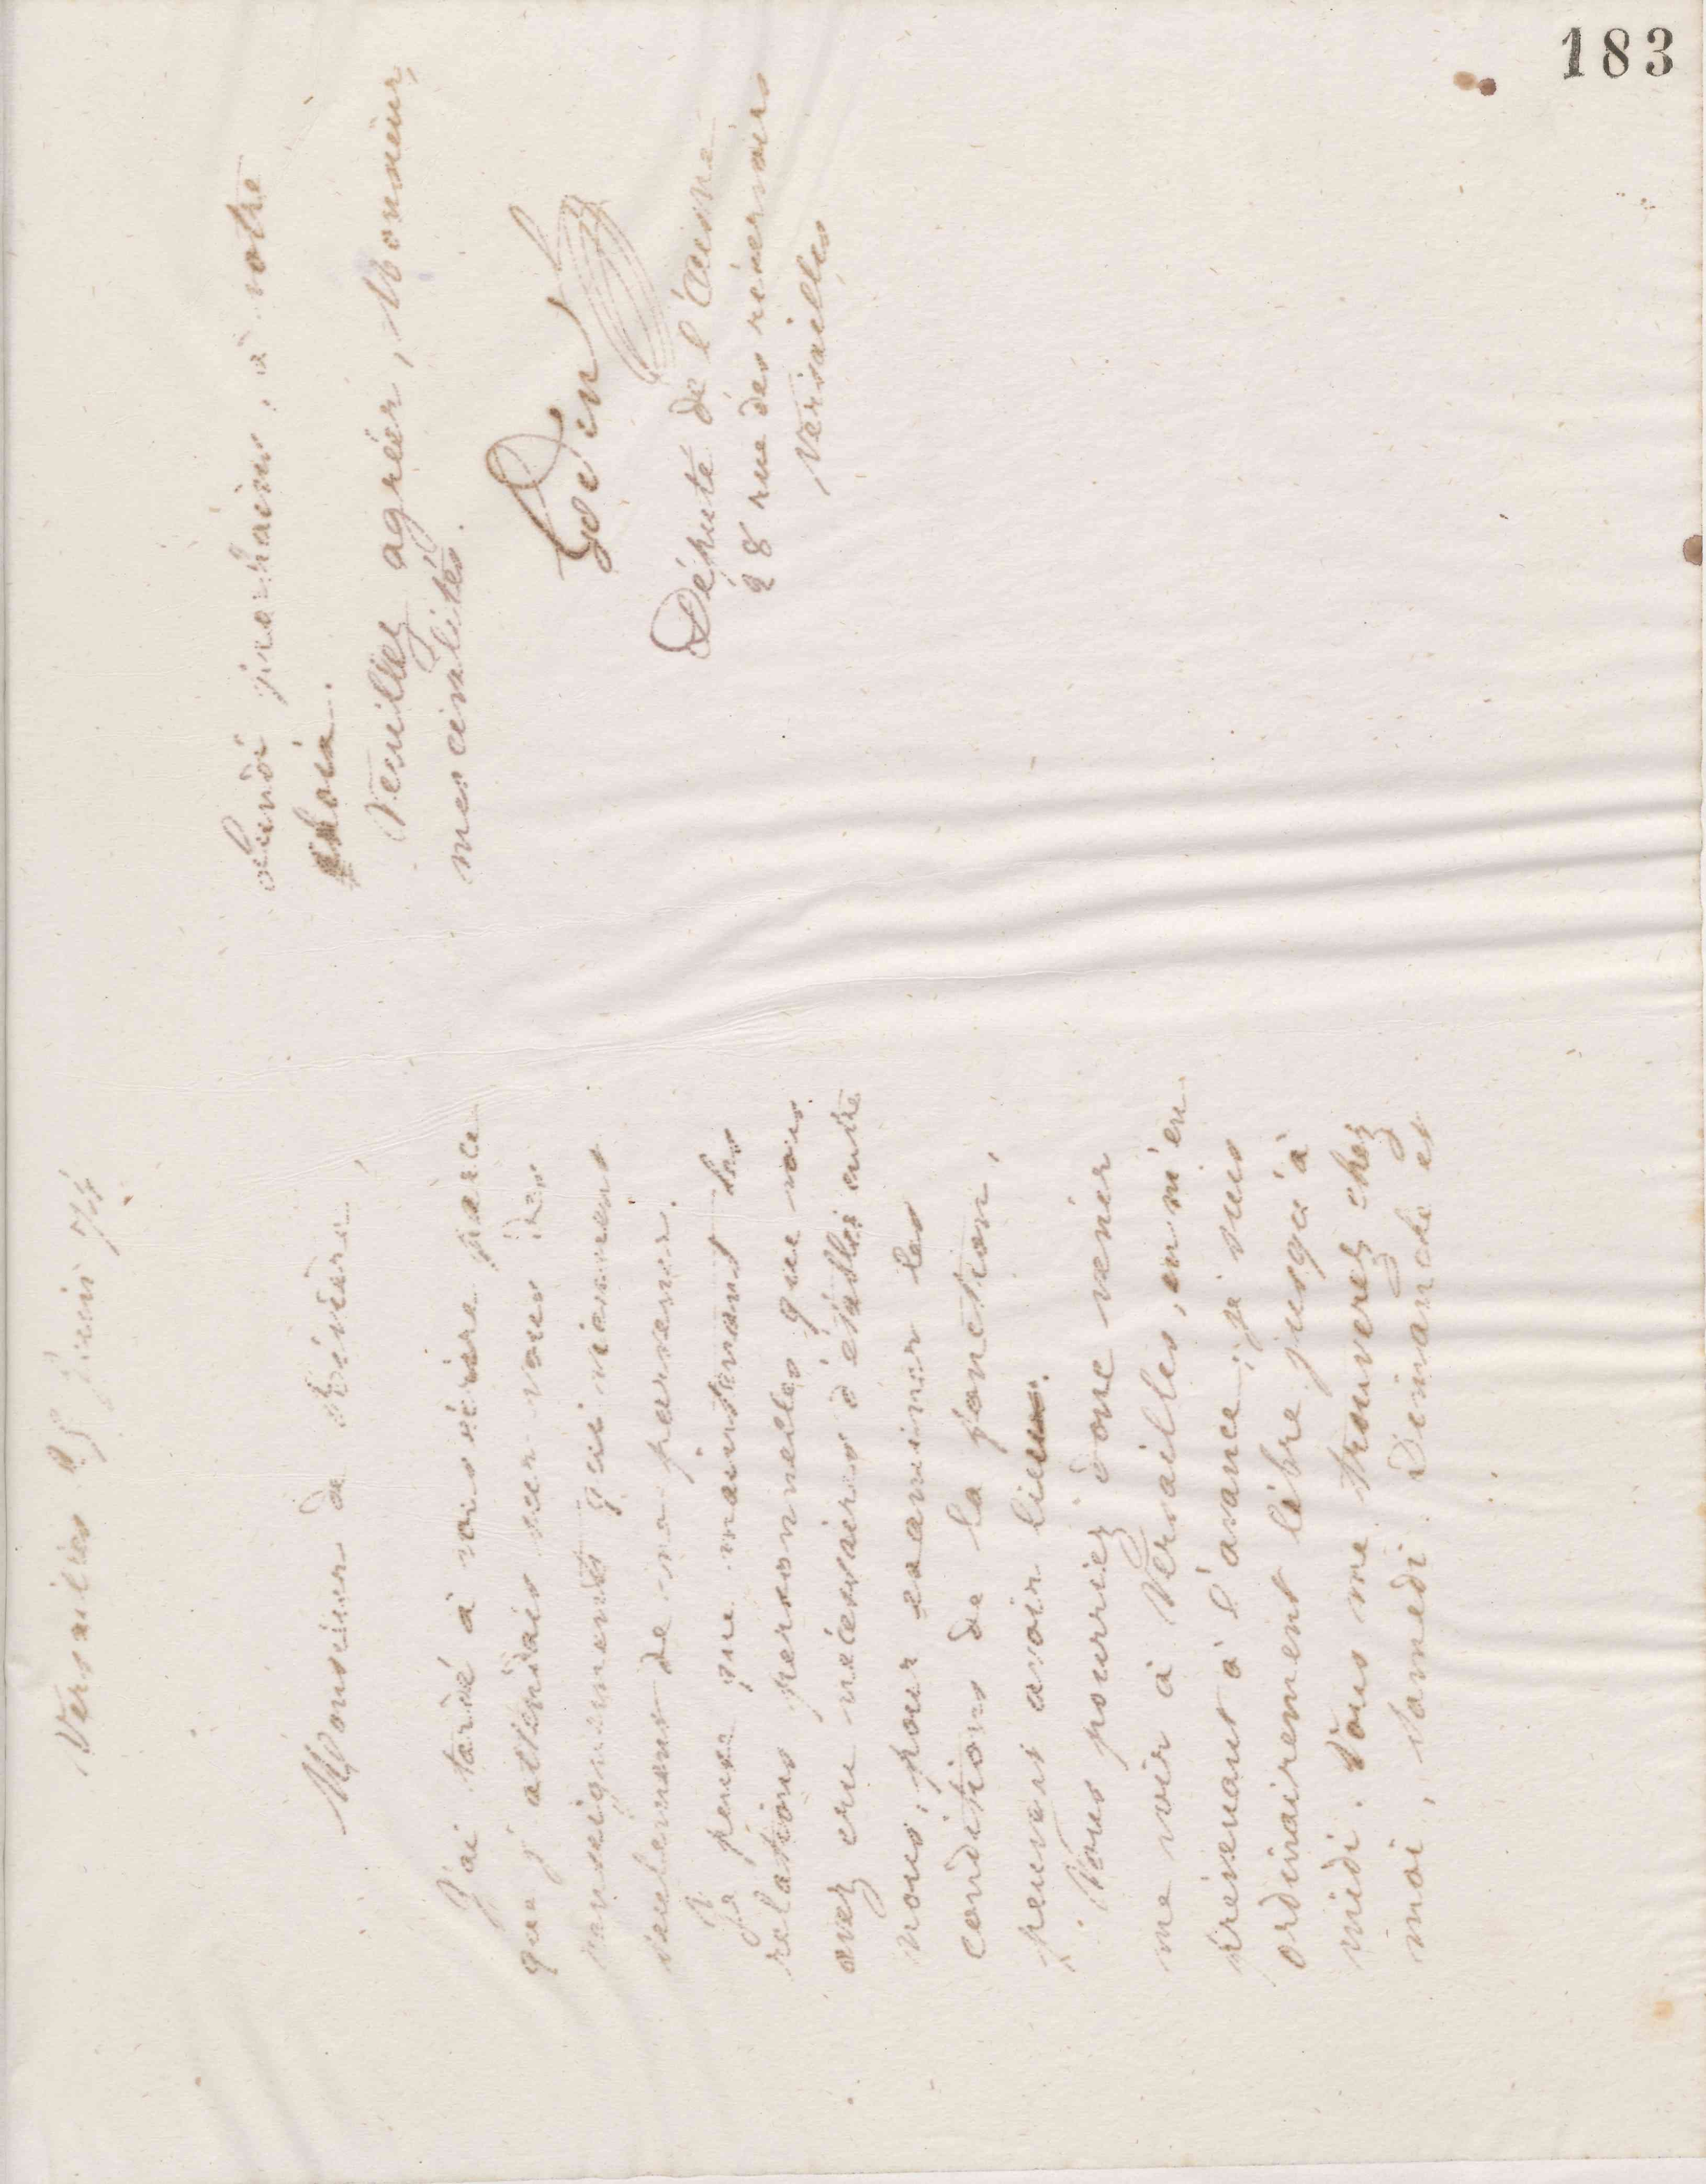 183
Versailles 25 Juin 74
Monsieur de
J'ai tardé à vous écrire parce
que j'attendais sur vous des
renseignements qui viennent
seulement de me parvenir.
Je pense que maintenant les
relations personnelles que vous
avez cru nécessaires d'établir entre
nous, pour examiner les
conditions de la fonction,
peuvent avoir lieu.
Vous pourriez donc venir
me voir à Versailles, en m'en
prévenant à l'avance; je suis
ordinairement libre jusqu'à
midi. Vous me trouverez chez
moi, Samedi Dimanche et
Lundi prochains, à votre
choix.
Veuillez agréer, Monsieur,
mes civilités.
Godin
Député de l'Aisne
28 rue des réservoirs
Versailles